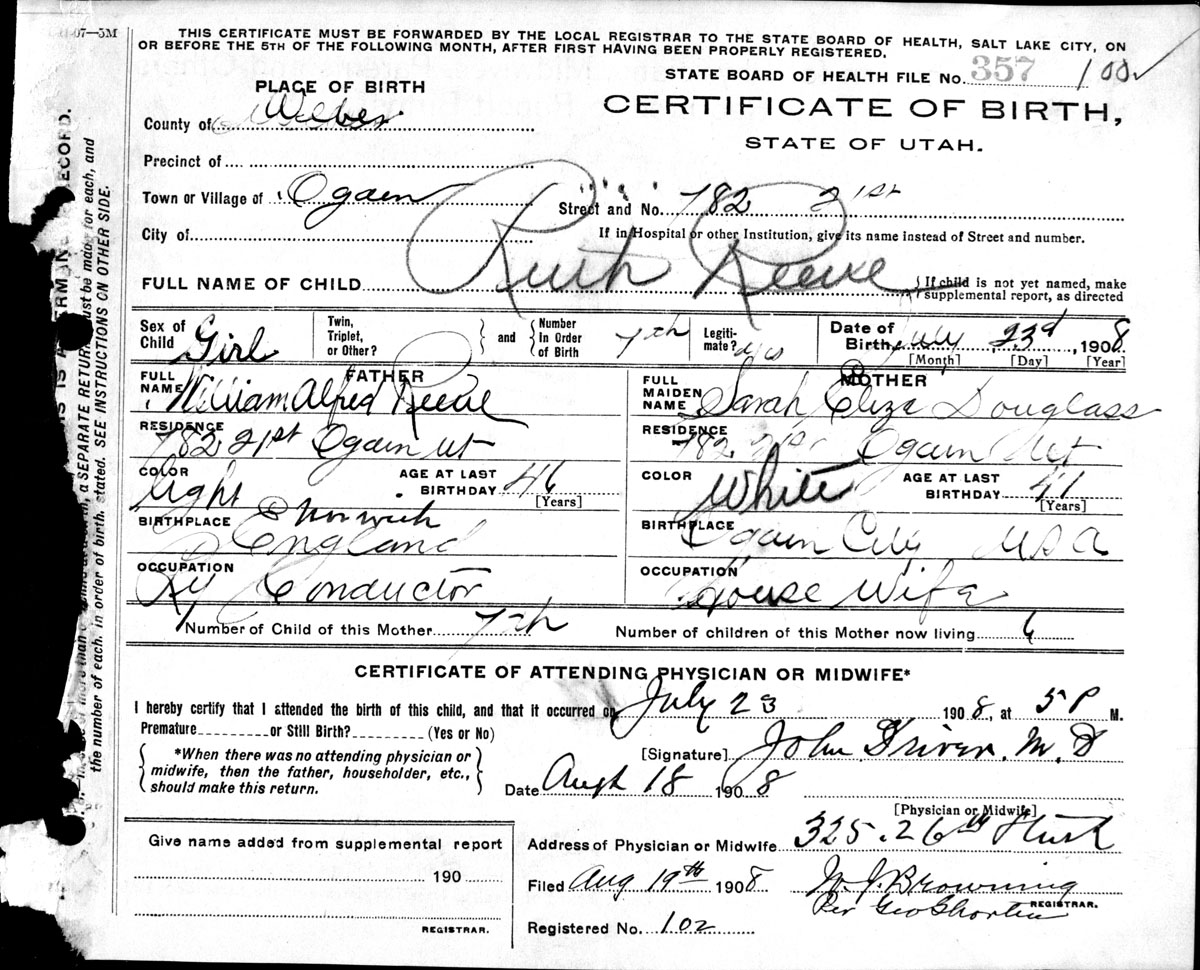 07—3M
THIS CERTIFICATE MUST BE FORWARDED BY THE LOCAL REGISTRAR TO THE STATE BOARD OF HEALTH, SALT LAKE CITY, ON
OR BEFORE THE 5TH OF THE FOLLOWING MONTH, AFTER FIRST HAVING BEEN PROPERLY REGISTERED.
STATE BOARD OF HEALTH FILE No. 357 100
PLACE OF BIRTH
CERTIFICATE OF BIRTH,
STATE OF UTAH.
County of Weber
Precinct of
Town or Village of Ogden Street and No. 782 21st
City of If in Hospital or other Institution, give its name instead of Street and number.
FULL NAME OF CHILD Ruth Reeve { If child is not yet named, make
supplemental report, as directed
Sex of Child Girl Twin, Triplet, or Other? } and { Number In Order of Birth 7th Legiti-mate? yes Date of Birth July 23d, 1908
[Month] [Day] [Year]
FATHER
FULL NAME William Alfred Reeve
RESIDENCE 782 21st Ogden Ut
COLOR Light AGE AT LAST BIRTHDAY 46 [Years]
BIRTHPLACE Norwich England
OCCUPATION Ry Conductor
MOTHER
FULL MAIDEN NAME Sarah Eliza Douglass
RESIDENCE 782 21st Ogden Ut
COLOR White AGE AT LAST BIRTHDAY 41 [Years]
BIRTHPLACE Ogden City USA
OCCUPATION House Wife
Number of Child of this Mother 7th Number of children of this Mother now living 6
CERTIFICATE OF ATTENDING PHYSICIAN OR MIDWIFE*
I hereby certify that I attended the birth of this child, and that it occurred on July 23 1908, at 5 P M.
Premature or Still Birth? (Yes or No)
{ *When there was no attending physician or
midwife, then the father, householder, etc.,
should make this return. }
[Signature] John Driver. M. D
Date Augh 18 1908
[Physician or Midwife]
Address of Physician or Midwife 325. 26th
Give name added from supplemental report
190
REGISTRAR.
Filed Aug 19th 1908 Browning
REGISTRAR.
Per Geo
Registered No. 102
RECORD.
a SEPARATE RETURN must be made for each, and
the number of each, in order of birth, stated. SEE INSTRUCTIONS ON OTHER SIDE.